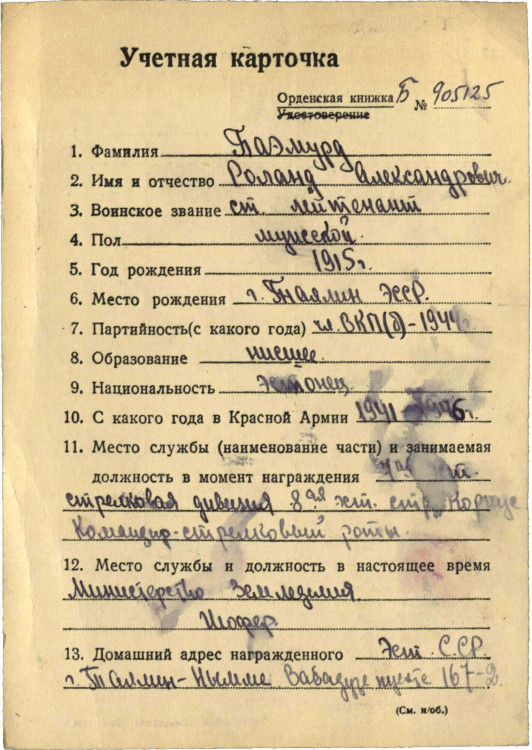 Учетная карточка
Орденская книжка Б № 905125
Удостоверение
1. Фамилия Паэмурд
2. Имя и отчество Роланд Александрович
3. Воинское звание ст. лейтенант
4. Пол мужской
5. Год рождения 1915 г.
6. Место рождения г. Таллин ЭССР.
7. Партийность(с какого года) чл. ВКП(б) - 1944 г.
8. Образование нисшее
9. Национальность Эстонец
10. С какого года в Красной Армии 1941-1946 г.
11. Место службы (наименование части) и занимаемая
должность в момент награждения 7ая эст.
стрелковая дивизия 8ая эст. стр. Корпус
Командир-стрелковый роты.
12. Место службы и должность в настоящее время
Министерство Земледелия
Шофер.
13. Домашний адрес награжденного Эст. С.С.Р.
г. Таллин-Нымме Вабадузе пуесте 167-2.
(См. н/об.)